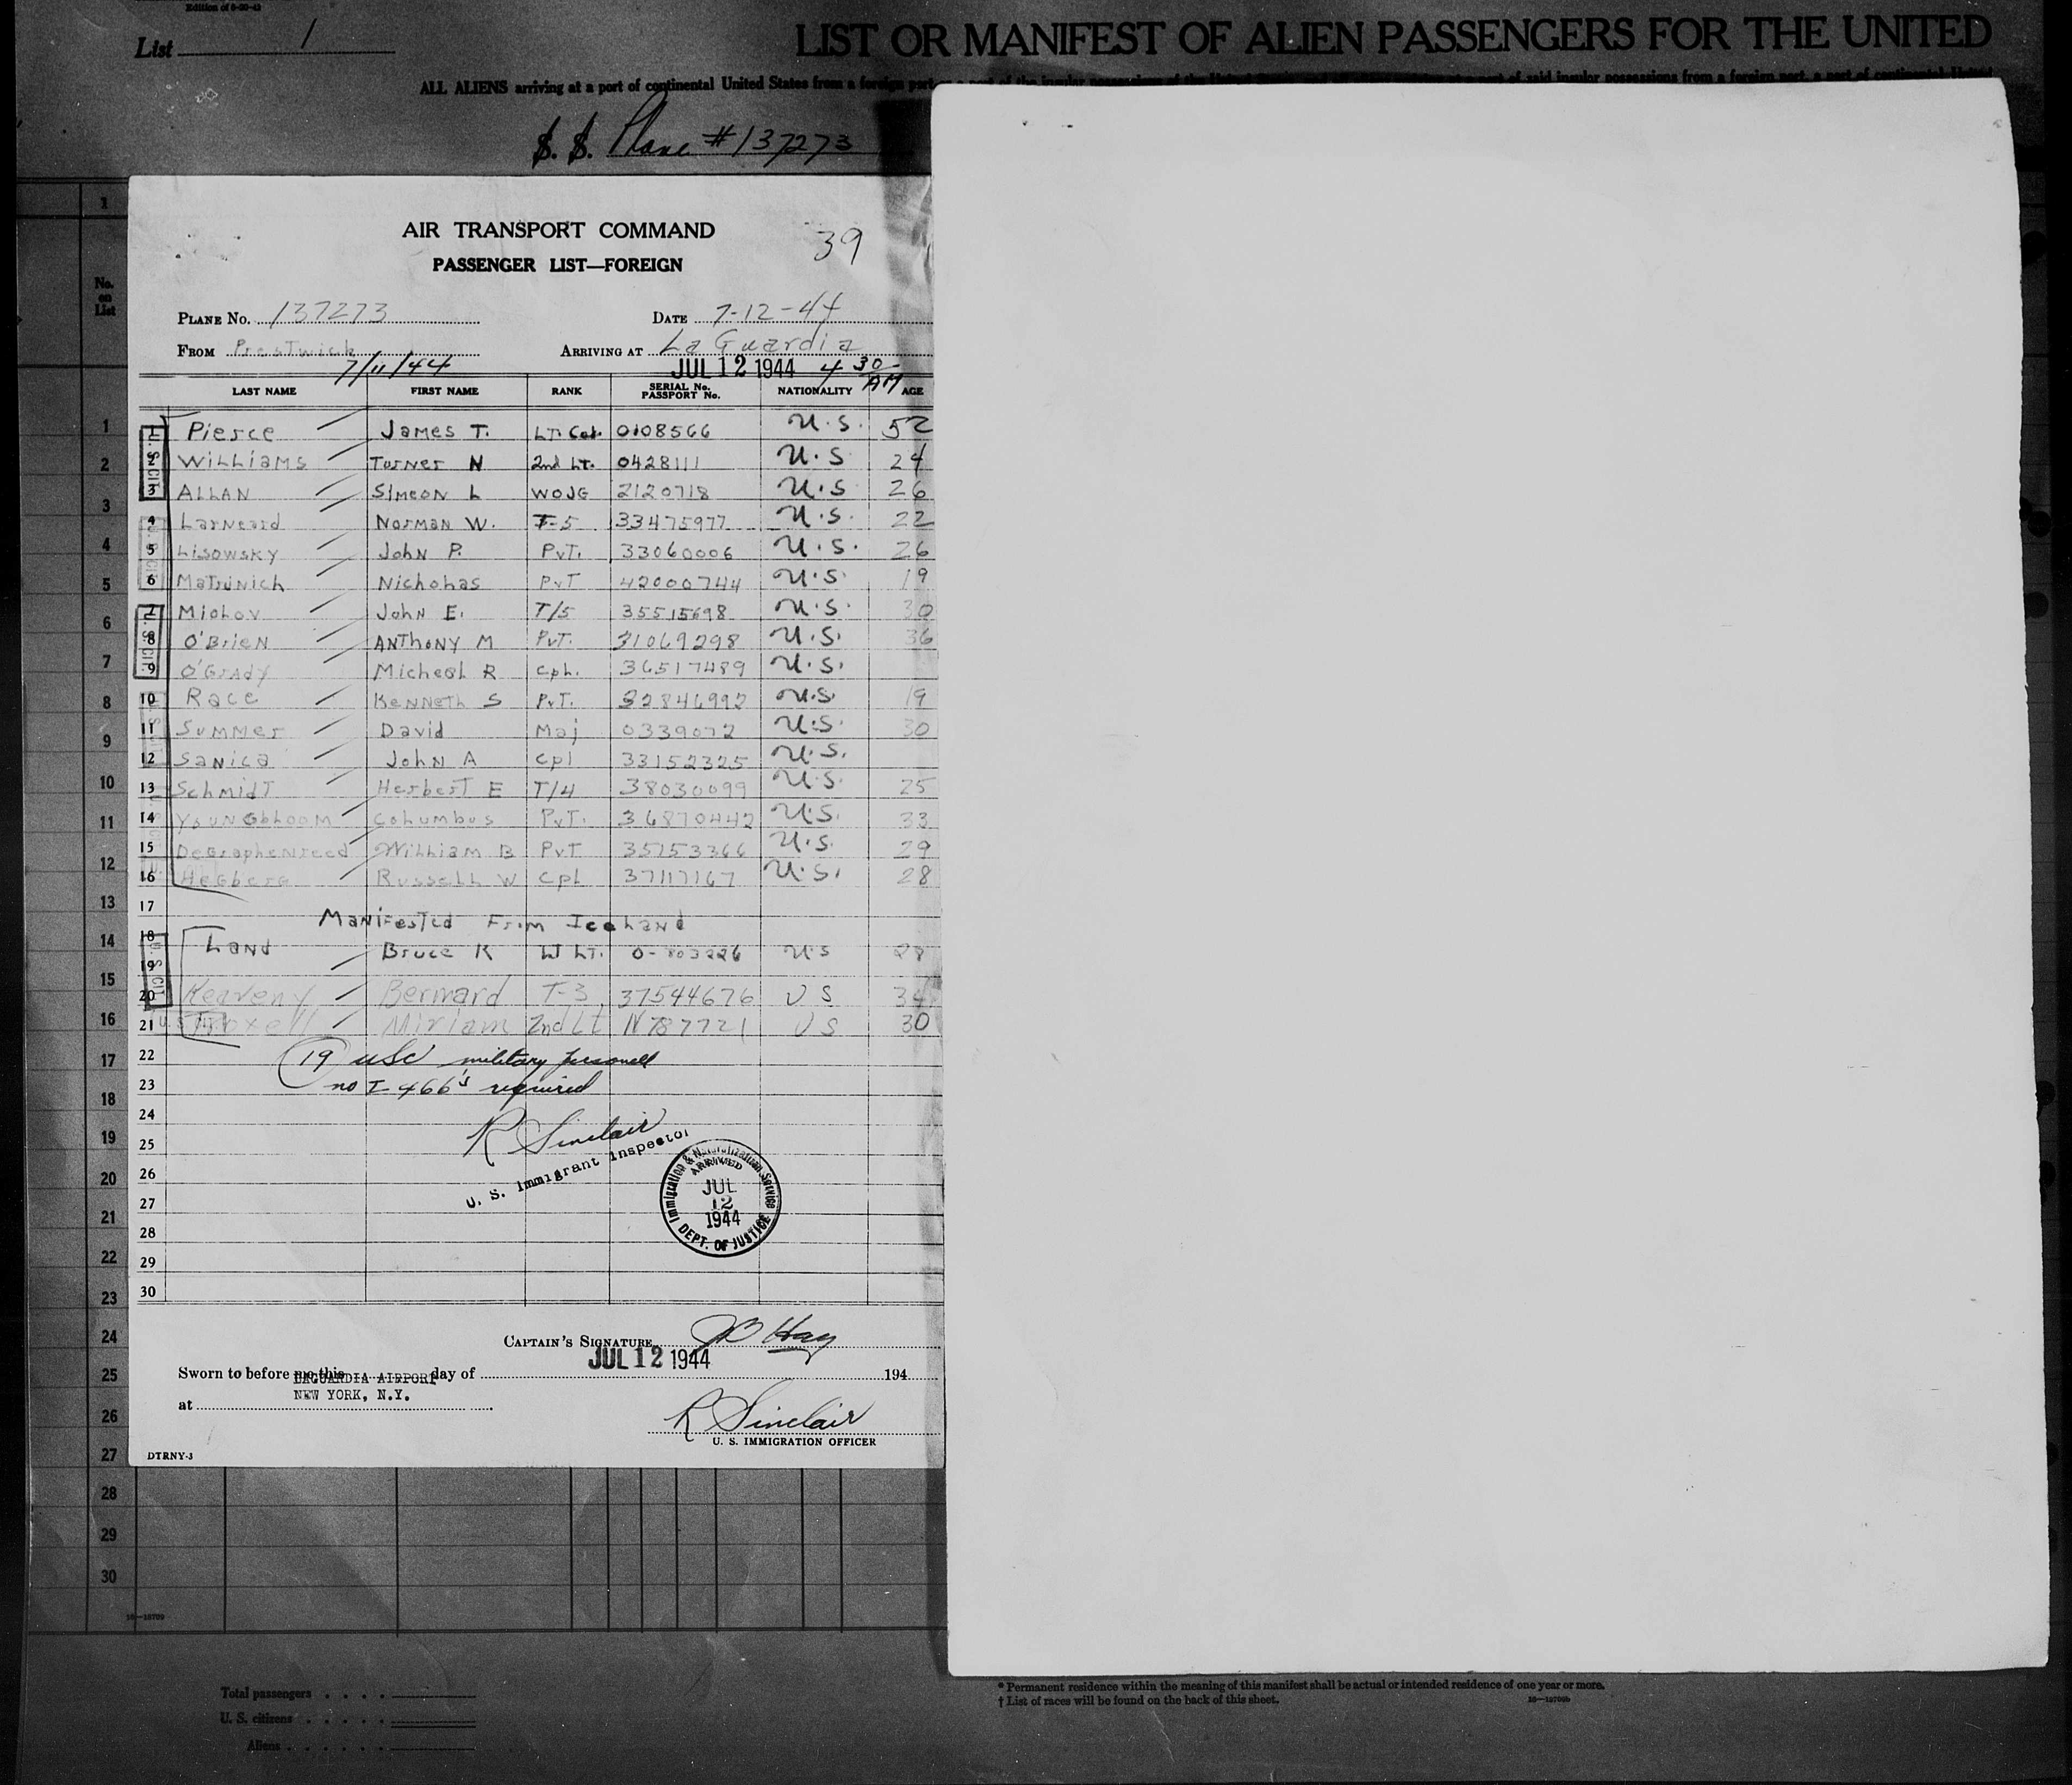 Edition of 6-20-42
List 1
LIST OR MANIFEST OF ALIEN PASSENGERS FOR THE UNITED
ALL ALIENS arriving at a port of continental United States from a foreign port
S. S. Plane #137273
AIR TRANSPORT COMMAND
39
PASSENGER LIST—FOREIGN
PLANE No. 137273 DATE 7-12-44
FROM Prestwick ARRIVING AT La Guardia
7/11/44 JUL 12 1944 4 30 AM
LAST NAME FIRST NAME RANK SERIAL No. PASSPORT No. NATIONALITY AGE
No. on List
1 Pierce James T. LT. Col. 0108566 U.S. 52
2 Williams Turner N 2nd Lt. 0428111 U.S 24
3 ALLAN Simeon L WOJG 2120718 U.S 26
4 Larneard Norman W. T-5 33475977 U.S. 22
5 Lisowsky John P. PvT. 33060006 U.S. 26
6 Nicholas PvT 42000744 U.S. 19
7 John E. T/5 35515698 U.S. 30
8 O'Brien ANThONY M PvT. 31069298 U.S. 36
9 O'Grady Micheal R Cpl. 36517489 U.S.
10 Race Kenneth S PvT. 32846992 U.S. 19
11 Summer David Maj 0339072 U.S. 30
12 Sanica John A Cpl 33152325 U.S.
13 Schmidt Herbert E T/4 38030099 U.S. 25
14 Youngbloom Columbus PvT. 36870442 U.S. 33
15 DeGraphenreed William B PvT 35753366 U.S. 29
16 Hegberg Russell W Cpl 37117167 U.S. 28
17
Manifested From Iceland
18
19 Land Bruce K Lt. 0-803226 U S 28
20 Keaveny Bernard T-3 37544676 U S 34
21 Troxell Miriam 2nd Lt N 787721 U S 30
22 19 USC military personell
23 no I-466's required
24
R Sinclair
25
U. S. Immigrant Inspector
26
27
28
29
30
Immigration & Naturalization Service
ARRIVED
JUL
12
1944
DEPT. OF JUSTICE
CAPTAIN'S SIGNATURE Hay
JUL 12 1944
Sworn to before me this day of 194
LAGUARDIA AIRPORT
NEW YORK, N.Y.
at
R Sinclair
U. S. IMMIGRATION OFFICER
DTRNY-3
1
2
3
4
5
6
7
8
9
10
11
12
13
14
15
16
17
18
19
20
21
22
23
24
25
26
27
28
29
30
Total passengers
U. S. citizens
Aliens
* Permanent residence within the meaning of this manifest shall be actual or intended residence of one year or more.
† List of races will be found on the back of this sheet.